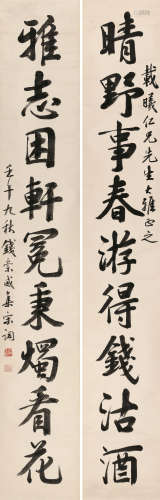 戴曦仁兄先生大雅正之
晴野事春游得錢沽酒
雅志困軒冕秉燭看花
壬午九秋錢崇威集宋詞